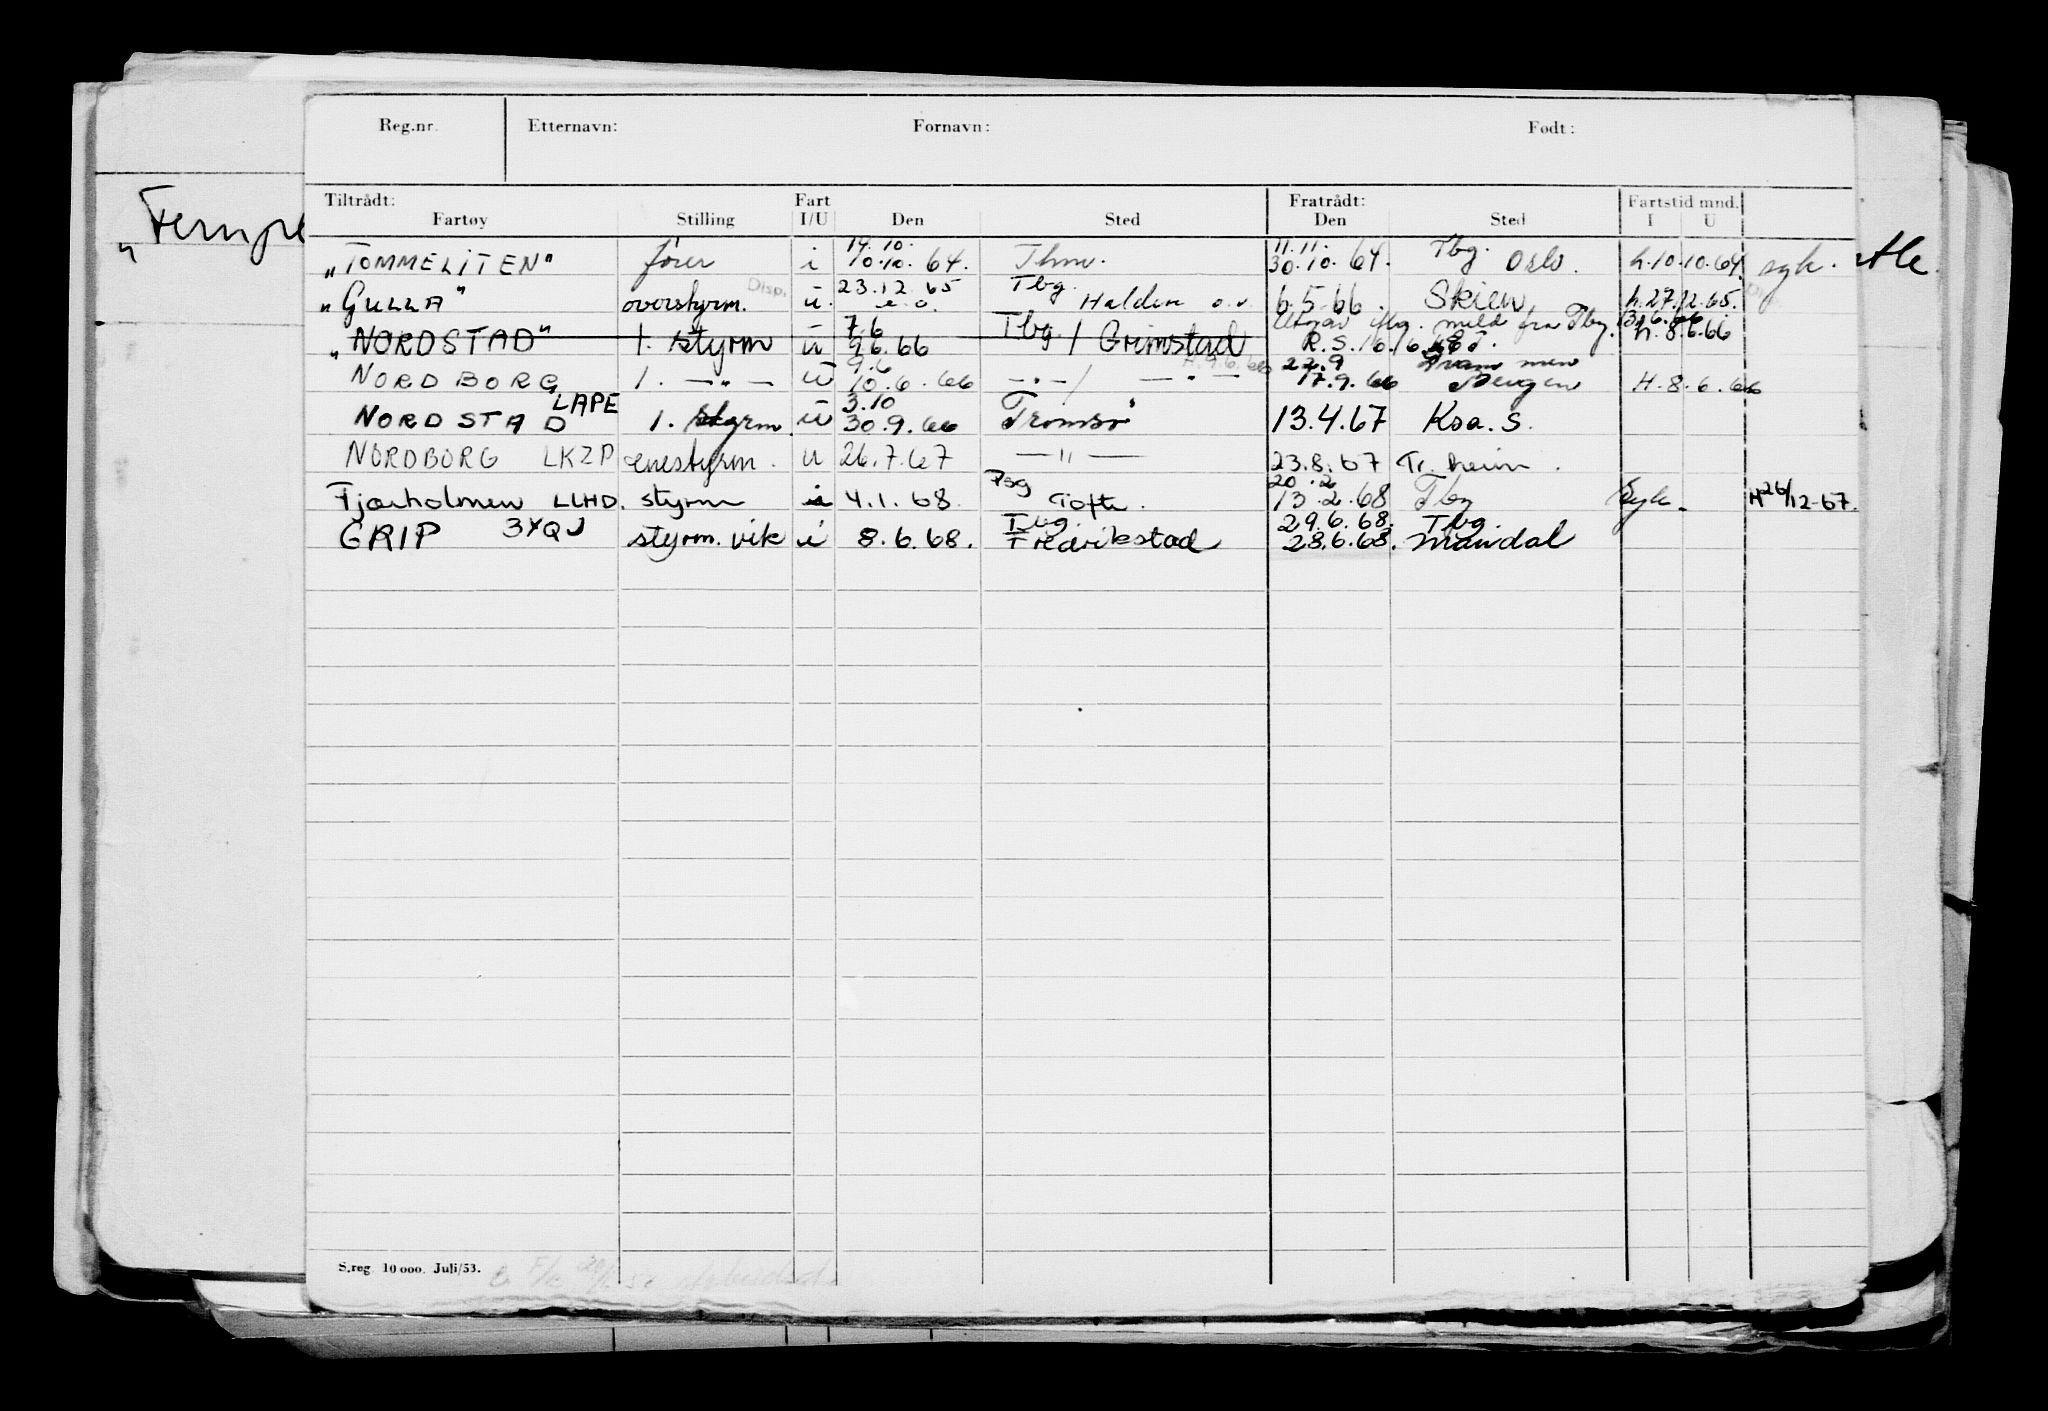 Reg.nr. Etternavn: Fornavn: Født:
Tiltrådt: Fart Fratrådt: Fartstid mnd.
Fartøy Stilling I/U Den Sted Den Sted I U
14.10. 11.11. Tbg.
"TOMMELITEN" fører i 10.10.64. Thm. 30.10.64. Oslo. h.10.10.64. syk.
Disp. 23.12.65 Tbg.
"GULLA" overstyrm. u. Halden 6.5.66. Skien h.27.12.65.
7.6 Utgår meld fra Tbg.
"NORDSTAD" 1. styrm u 9.6.66 Tbg / Grimstad R.S. h.8.6.66
9.6 H.9.6.66 22.9
NORDBORG 1. —"— u 10.6.66 —"—/ —"— 17.9.66 H.8.6.66
LAPE 3.10
NORDSTAD 1. styrm u 30.9.66 Tromsø 13.4.67 Ksa.S.
NORDBORG LKZP enestyrm. u 26.7.67 —"— 23.8.67 Tr.heim.
20.2
Fjorholmen LLHD. styrm i 4.1.68. Tofte. 13.2.68 Tbg Syk. H 26/12-67.
Tbg. 29.6.68. Tbg.
GRIP 3YQJ styrm. vik i 8.6.68. Fredrikstad 28.6.68. Mandal
S.reg. 10 000. Juli/53.